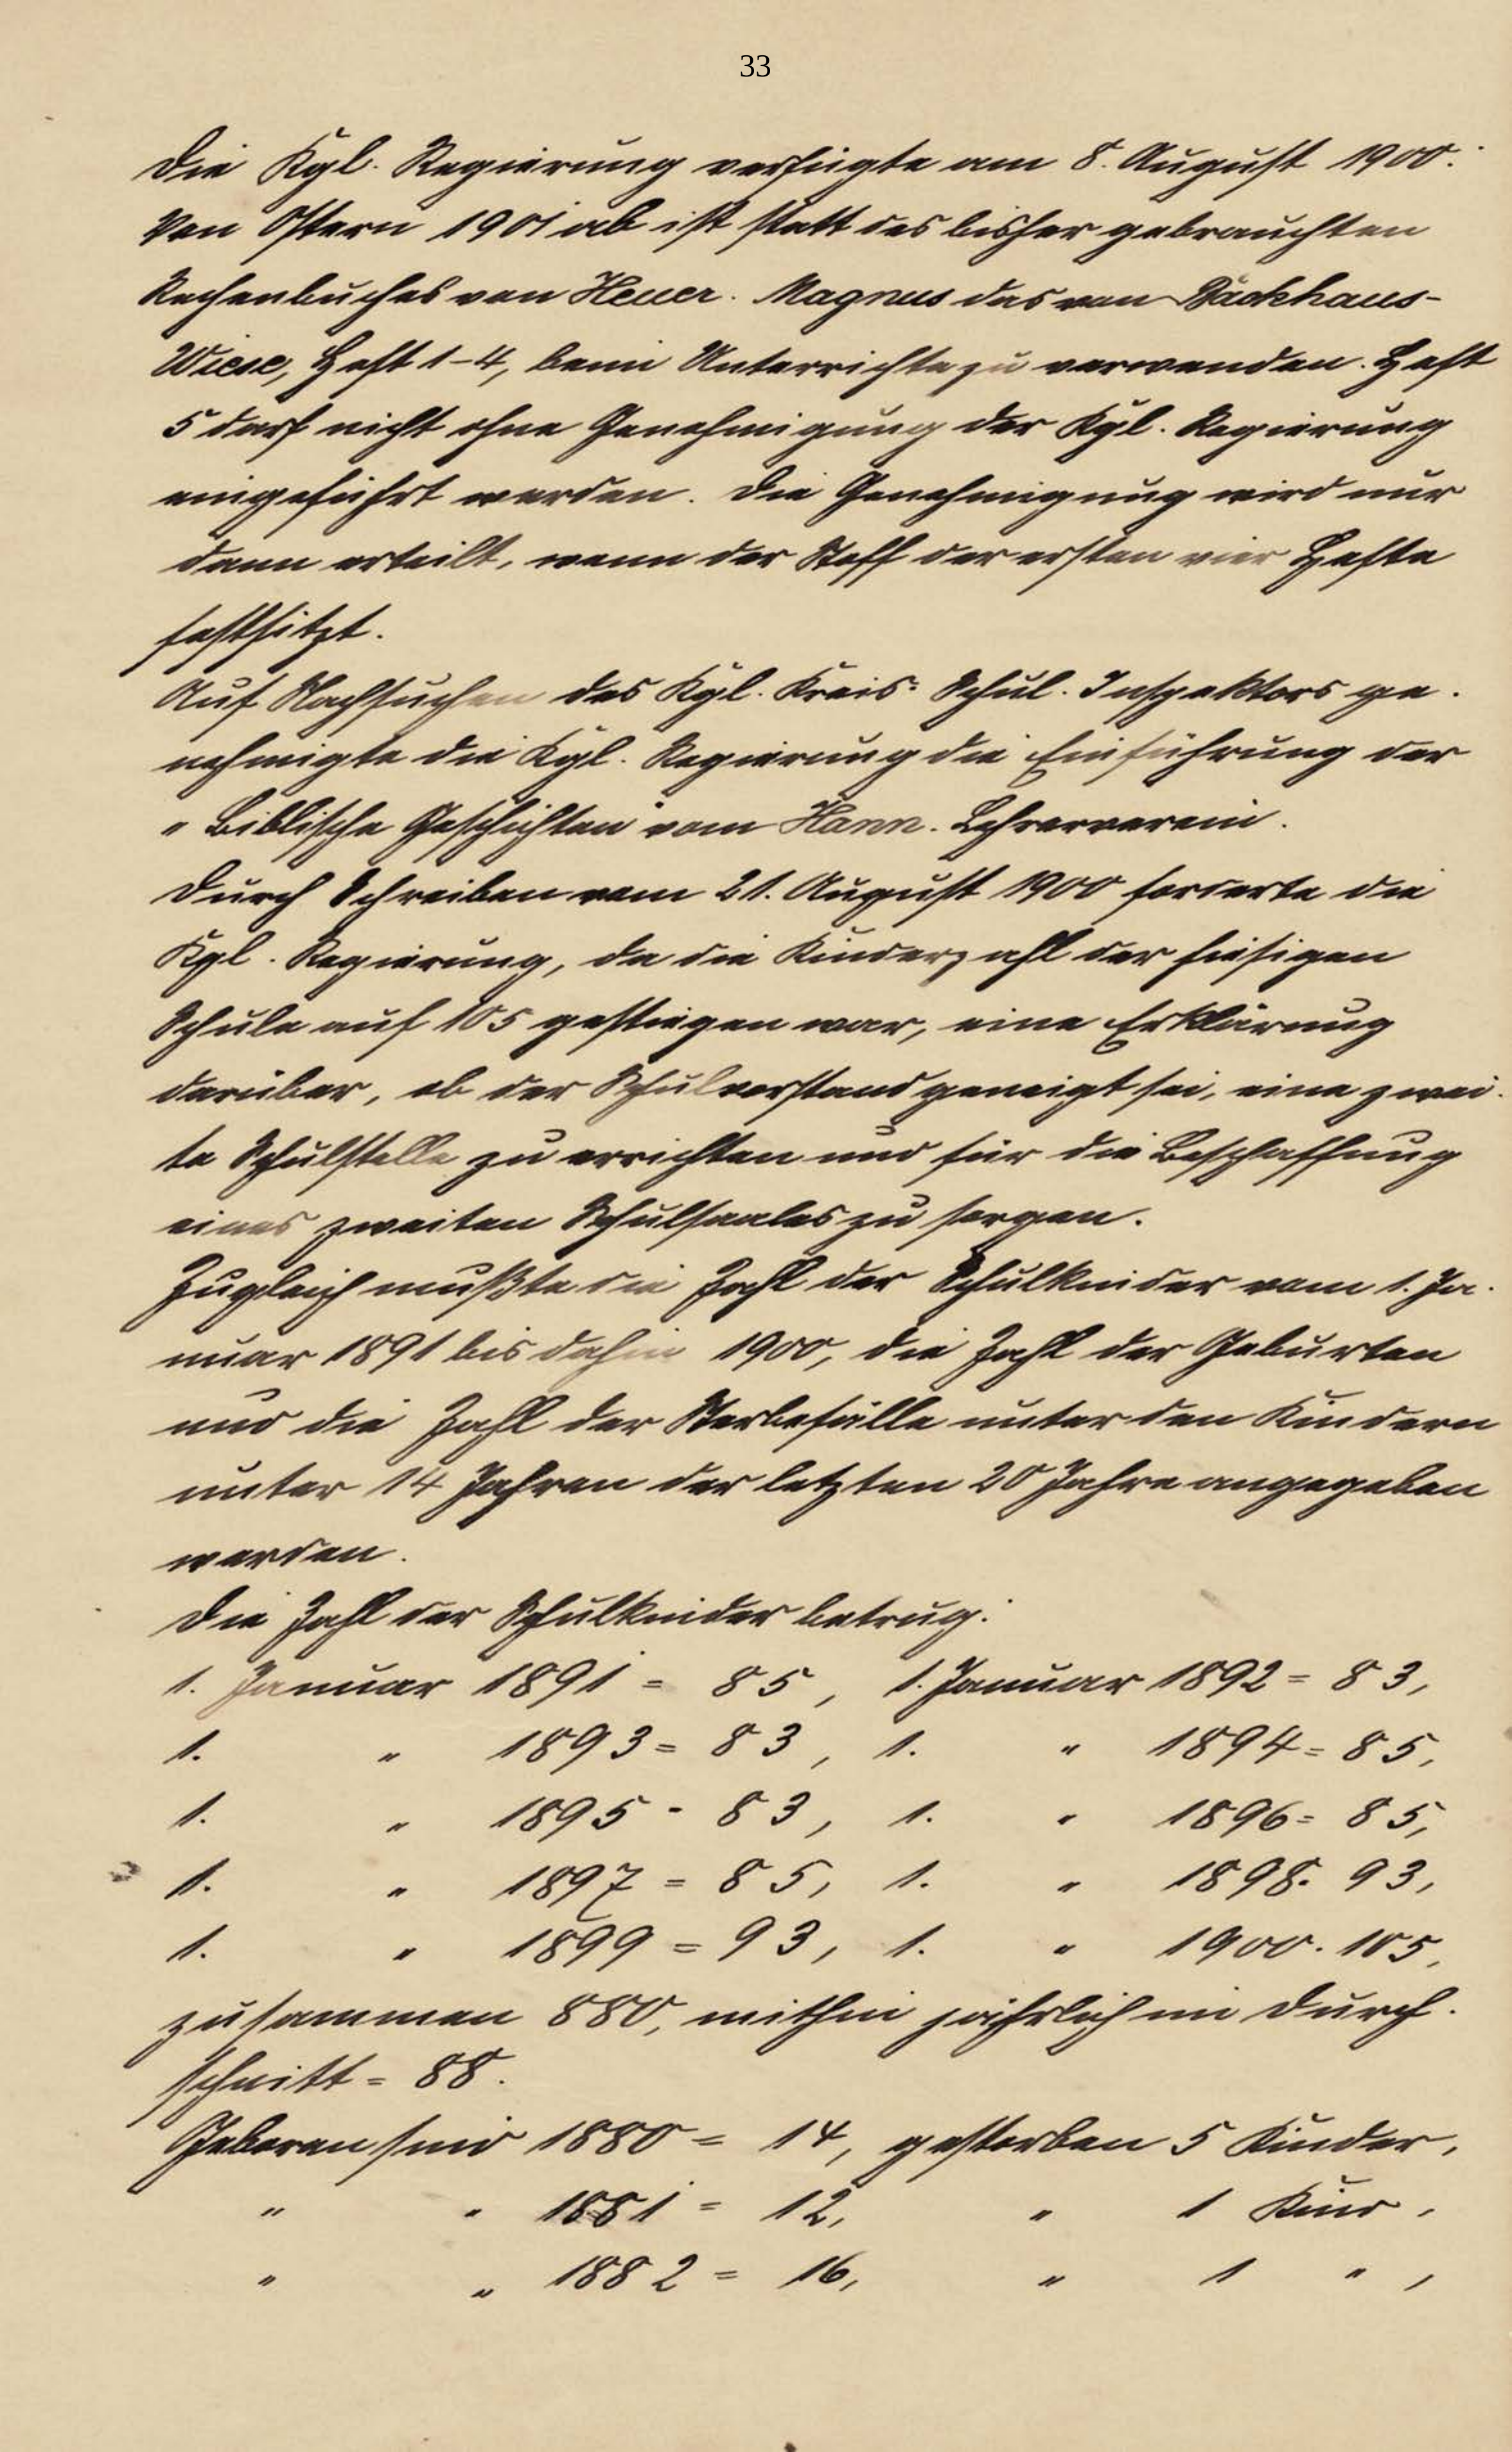 33
Die Kgl. Regierung verfügte am 8. August 1900:
Von Ostern 1901 ab ist statt des bisher gebrauchten
Rechenbuches von Heuer. Magnus das von Backhaus-
Wiese, Heft 1-4, beim Unterrichte zu verwenden. Heft
5 darf nicht ohne Genehmigung der Kgl. Regierung
eingeführt werden. Die Genehmigung wird nur
dann erteilt, wenn der Stoff der ersten vier Hefte
festsitzt.
Auf Nachsuchen des Kgl. Kreis- Schul- Inspektors ge-
nehmigte die Kgl. Regierung die Einführung der
"Biblische Geschichten" vom Hann. Lehrerverein.
Durch Schreiben vom 21. August 1900 forderte die
Kgl. Regierung, da die Kinderzahl der hiesigen
Schule auf 105 gestiegen war, eine Erklärung
darüber, ob der Schulvorstand geneigt sei, eine zwei-
te Schulstelle zu errichten und für die Beschaffung
eines zweiten Schulsaales zu sorgen.
Zugleich mußte die Zahl der Schulkinder vom 1. Ja-
nuar 1891 bis dahin 1900, die Zahl der Geburten
und die Zahl der Sterbefälle unter den Kindern
unter 14 Jahren der letzten 20 Jahre angegeben
werden.
Die Zahl der Schulkinder betrug:
1. Januar 1891 = 85, 1. Januar 1892 = 83,
1. " 1893 = 83, 1. " 1894 = 85,
1. " 1895 - 83, 1. " 1896 = 85,
1. " 1897 = 85, 1. " 1898 = 93,
1. " 1899 = 93, 1. " 1900 - 105,
zusammen 880, mithin jährlich im Durch-
schnitt = 88.
Geboren sind 1880 = 14, gestorben 5 Kinder,
" " 1881 = 12, " 1 Kind,
" " 1882 = 16, " 1 ",